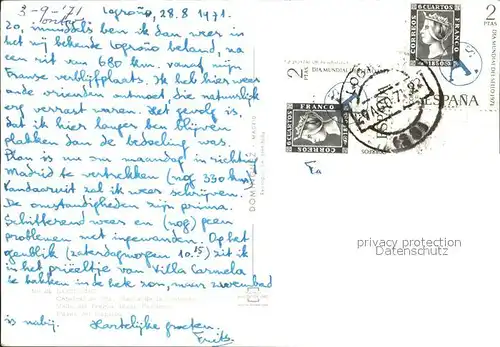 3-9-'71
Logroño, 28.8 1971.
Zo, inmiddels ben ik dan weer in
het mij bekende Logroño beland, na
een rit van 680 km. vanaf mijn
Franse verblijfplaats. Ik heb hier weer
oude vrienden ontmoet die natuurlijk
erg verrast waren. Het gevolg is
dat ik hier langer ben blijven
plakken dan de bedoeling was.
Plan is nu om maandag in richting
Madrid te vertrekken (nog 330 km)
Vandaaruit zal ik weer schrijven.
De omstandigheden zijn prima.
Schitterend weer en (nog) geen
problemen met ingewanden. Op het
ogenblik (zaterdagmorgen 10.15) zit ik
in het prieeltje van Villa Carmela
te bakken in de hete zon, maar zwembad
is nabij. Hartelijke groeten.
Frits
2 PTAS
DIA MUNDIAL DEL SELLO 1971
6 CUARTOS
CORREOS
1850
FRANCO
ESPAÑA
2 PTAS
DIA MUNDIAL
FRANCO
6 CUARTOS
CORREOS
A
privacy protection
Datenschutz